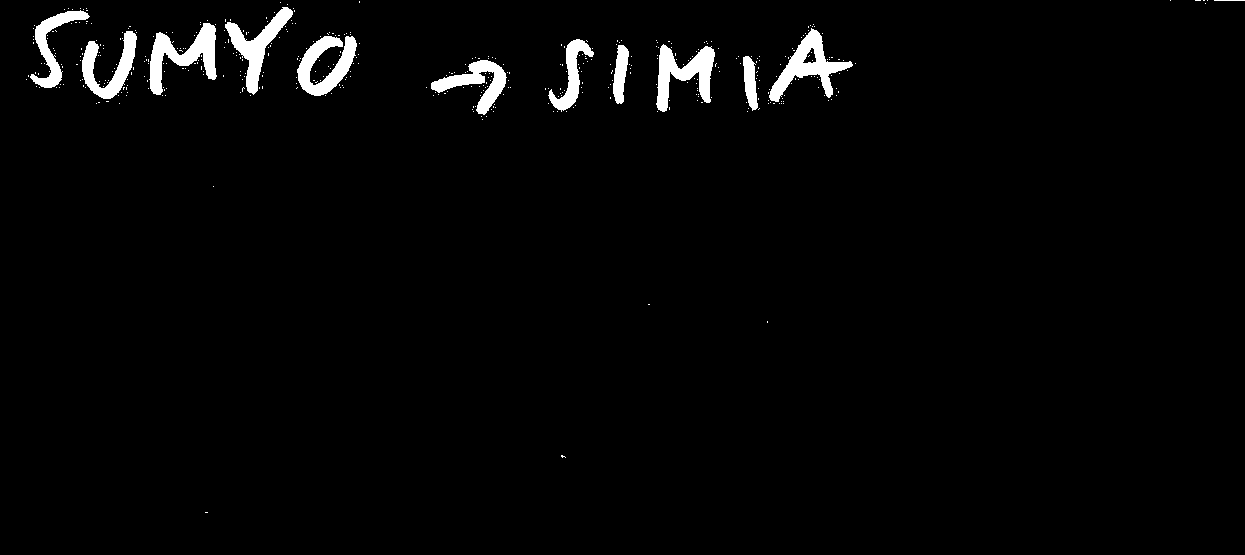 SUMYO → SIMIA